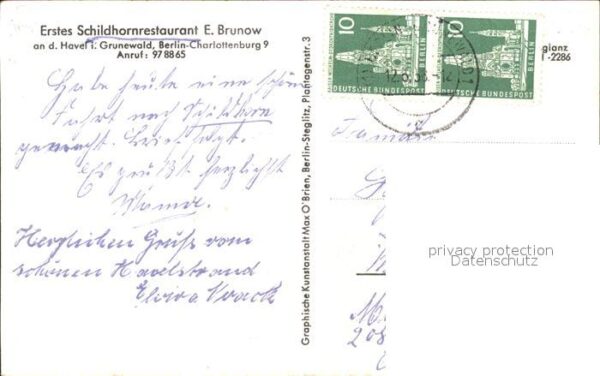 Erstes Schildhornrestaurant E. Brunow
an d. Havel i. Grunewald, Berlin-Charlottenburg 9
Anruf: 97 88 65
Habe heute eine schöne
Fahrt nach Schildhorn
gemacht. Brief folgt.
Es grüßt herzlichst
Herzlichen Gruß vom
schönen Havelstrand
Elvira
Graphische Kunstanstalt Max O'Brien, Berlin-Steglitz, Plantagenstr. 3
10
BERLIN
DEUTSCHE BUNDESPOST
10
BERLIN
DEUTSCHE BUNDESPOST
glanz
-2286
Familie
privacy protection
Datenschutz